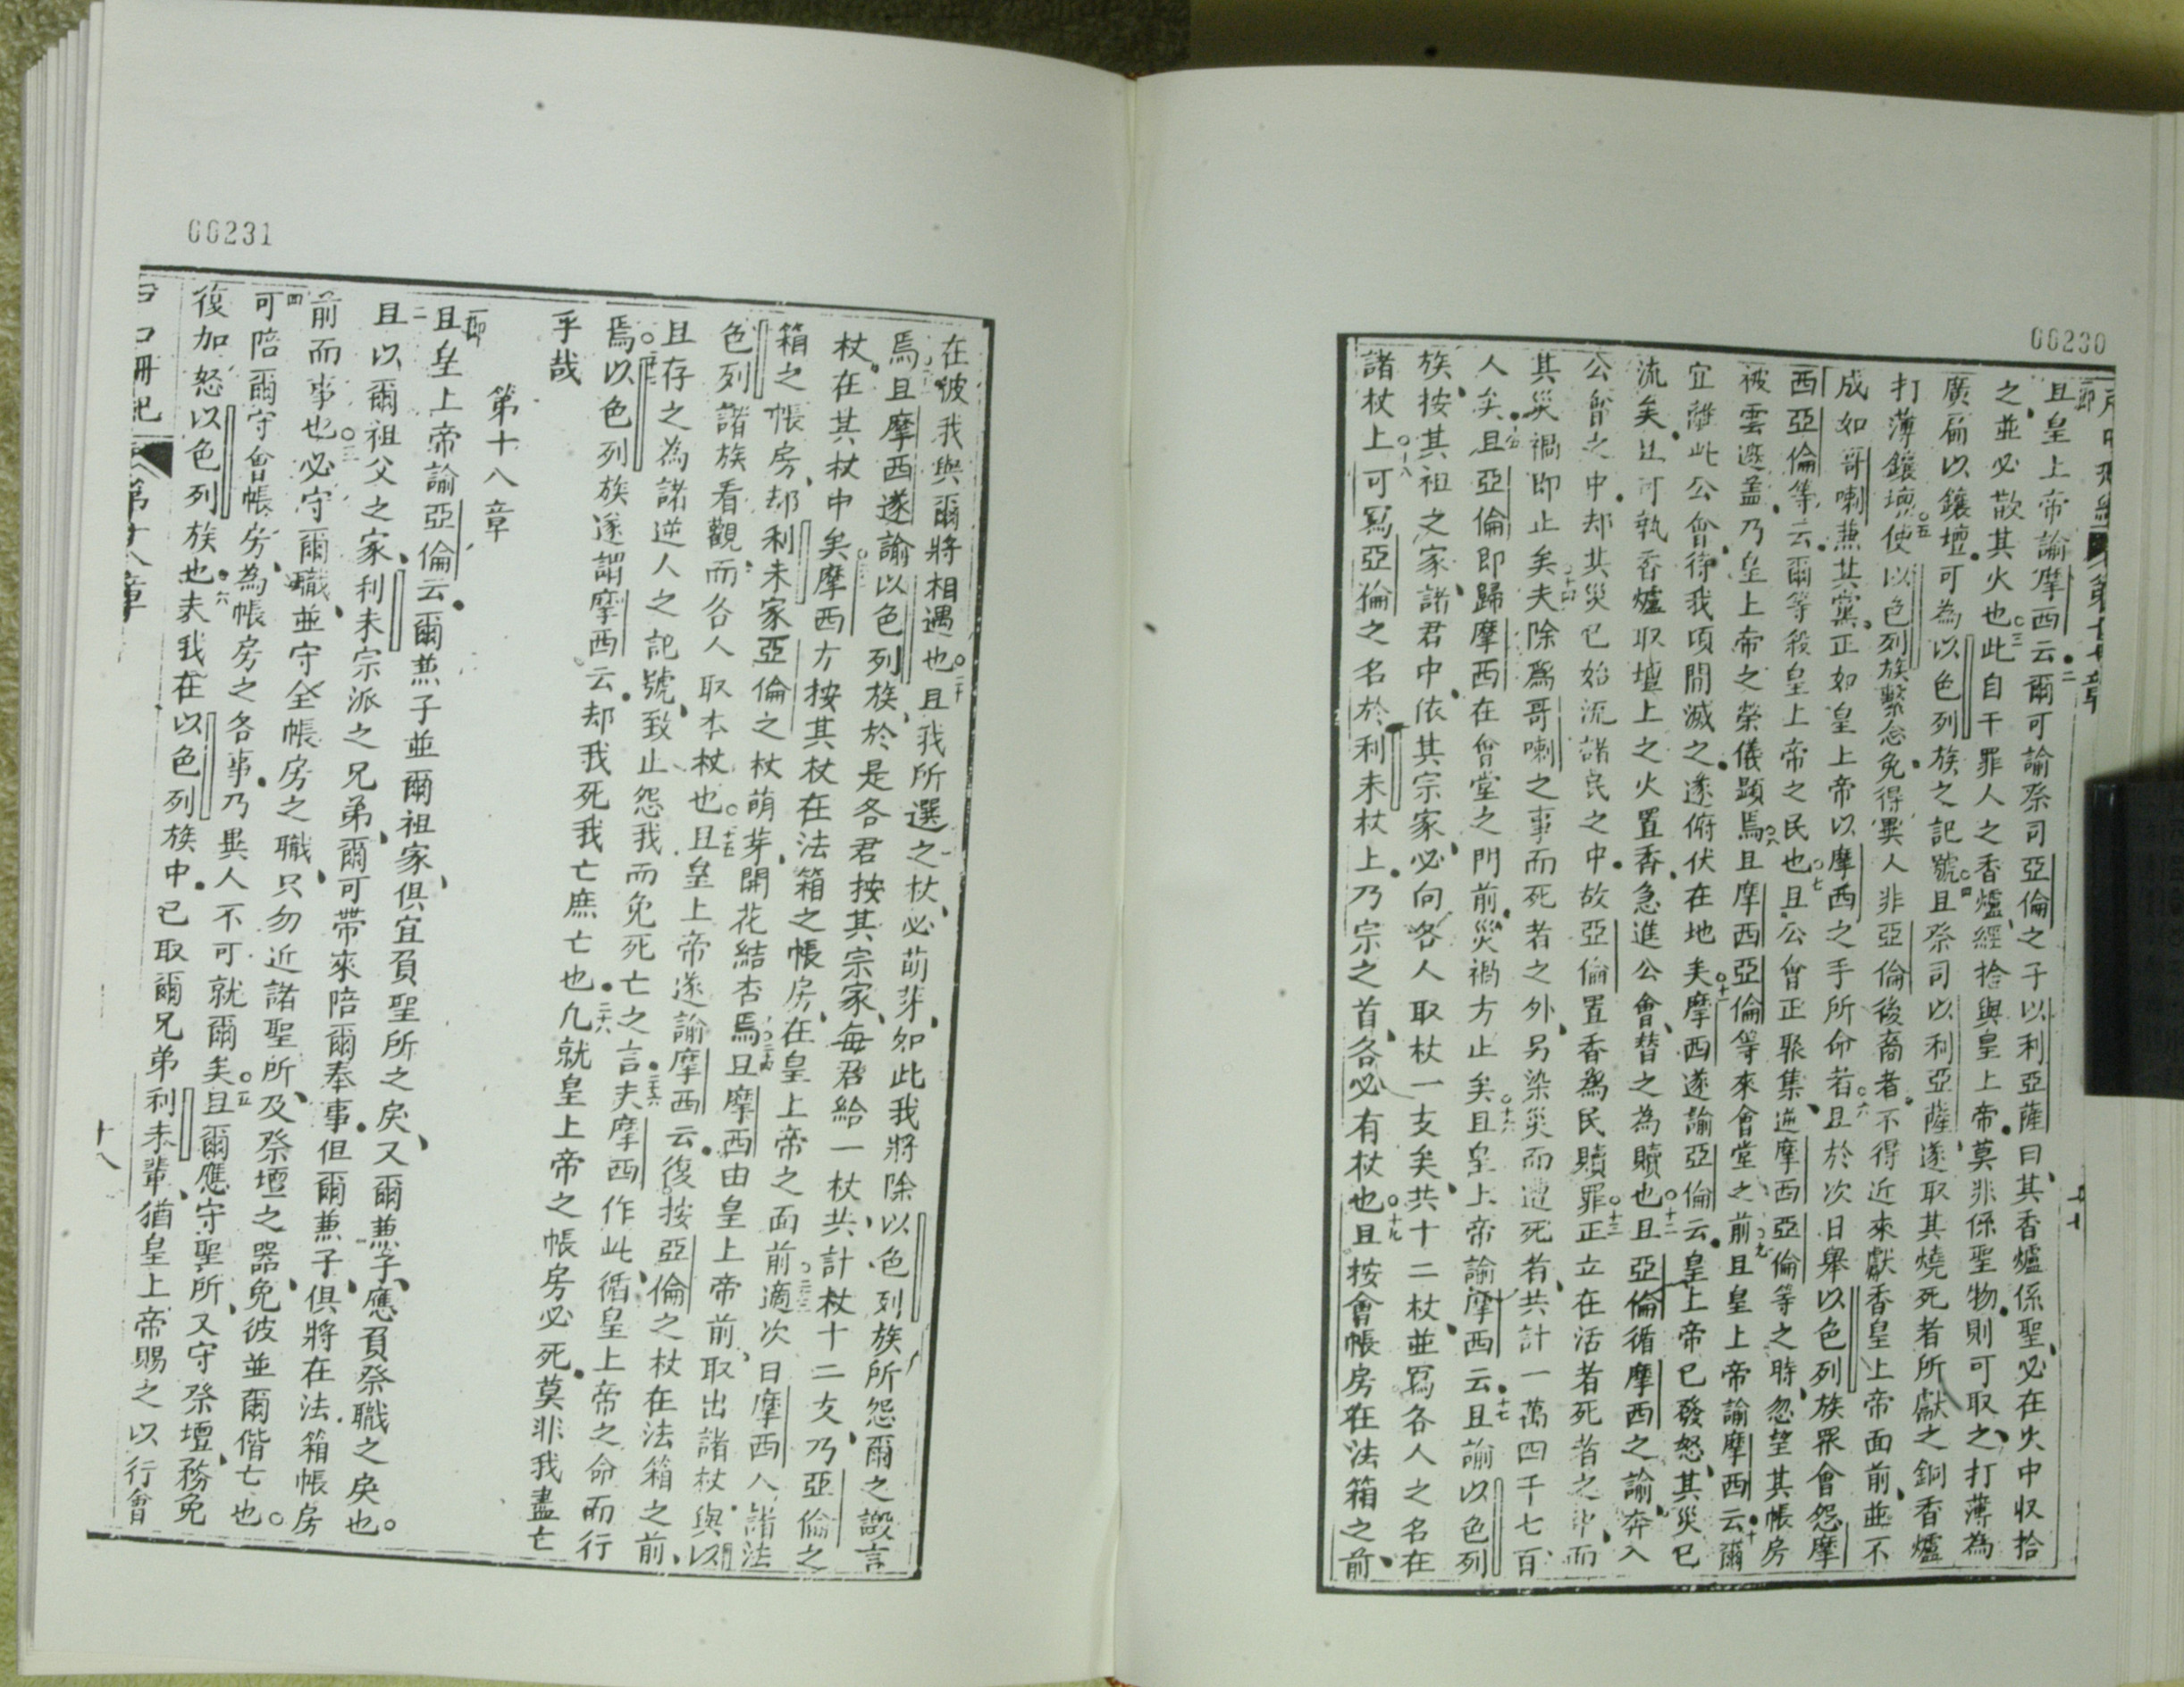 66230
第十七章
節 且皇上帝諭摩西云二爾可諭祭司亞倫之子以利亞薩曰其香爐係聖必在火中収拾
之並必散其火也三此自干罪人之香爐經拾與皇上帝莫非係聖物則可取之打薄為
廣扁以鑲壇可為以色列族之記號四且祭司以利亞薩遂取其燒死者所獻之銅香爐
打薄鑲壇五使以色列族繫念免得異人非亞倫後裔者不得近來獻香皇上帝面前並不
成如哥喇兼其黨正如皇上帝以摩西之手所命者六且於次日舉以色列族眾會怨摩
西亞倫等云爾等殺皇上帝之民也七且公會正聚集逆摩西亞倫等之時忽望其帳房
被雲遮盖乃皇上帝之榮儀顯焉八且摩西亞倫等來會堂之前九且皇上帝諭摩西云十爾
宜離此公會待我頃間滅之遂俯伏在地矣十一摩西遂諭亞倫云皇上帝已發怒其災已
流矣且可執香爐取壇上之火置香急進公會替之為贖也十二且亞倫循摩西之諭奔入
公會之中却其災已始流諸民之中故亞倫置香為民贖罪十三正立在活者死者之中而
其災禍即止矣十四夫除為哥喇之事而死者之外另染災而遭死者共計一萬四千七百
人矣十五且亞倫即歸摩西在會堂之門前災禍方止矣十六且皇上帝諭摩西云十七且諭以色列
族按其祖父之家諸君中依其宗家必向各人取杖一支矣共十二杖並寫各人之名在
諸杖上十八可寫亞倫之名於利未杖上乃宗之首各必有杖也十九且按會帳房在法箱之前
66231
在彼我與爾將相遇也二十且我所選之杖必萌芽如此我將除以色列族所怨爾之譭言
焉且摩西遂諭以色列族於是各君按其宗家每君給一杖共計杖十二支乃亞倫之
杖在其杖中矣摩西方按其杖在法箱之帳房在皇上帝之面前二三適次日摩西入諸法
箱之帳房却利未家亞倫之杖萌芽開花結杏焉二四且摩西由皇上帝前取出諸杖與以
色列諸族看觀而各人取本杖也二五且皇上帝遂諭摩西云復按亞倫之杖在法箱之前
且存之為諸逆人之記號致止怨我而免死亡之言二六夫摩西作此循皇上帝之命而行
焉以色列族遂謂摩西云却我死我亡庶亡也二八凢就皇上帝之帳房必死莫非我盡亡
乎哉
第十八章
一節 且皇上帝諭亞倫云爾兼子並爾祖家俱宜負聖所之戾又爾兼子應負祭職之戾也
二 且以爾祖父之家利未宗派之兄弟爾可帶來陪爾奉事但爾兼子俱將在法箱帳房
前而事也三必守爾職並守全帳房之職只勿近諸聖所及祭壇之器免彼並爾偕亡也
四 可陪爾守會帳房為帳房之各事乃異人不可就爾矣五且爾應守聖所又守祭壇務免
復加怒以色列族也六夫我在以色列族中已取爾兄弟利未輩猶皇上帝賜之以行會
戶口冊紀
第十八章
十八